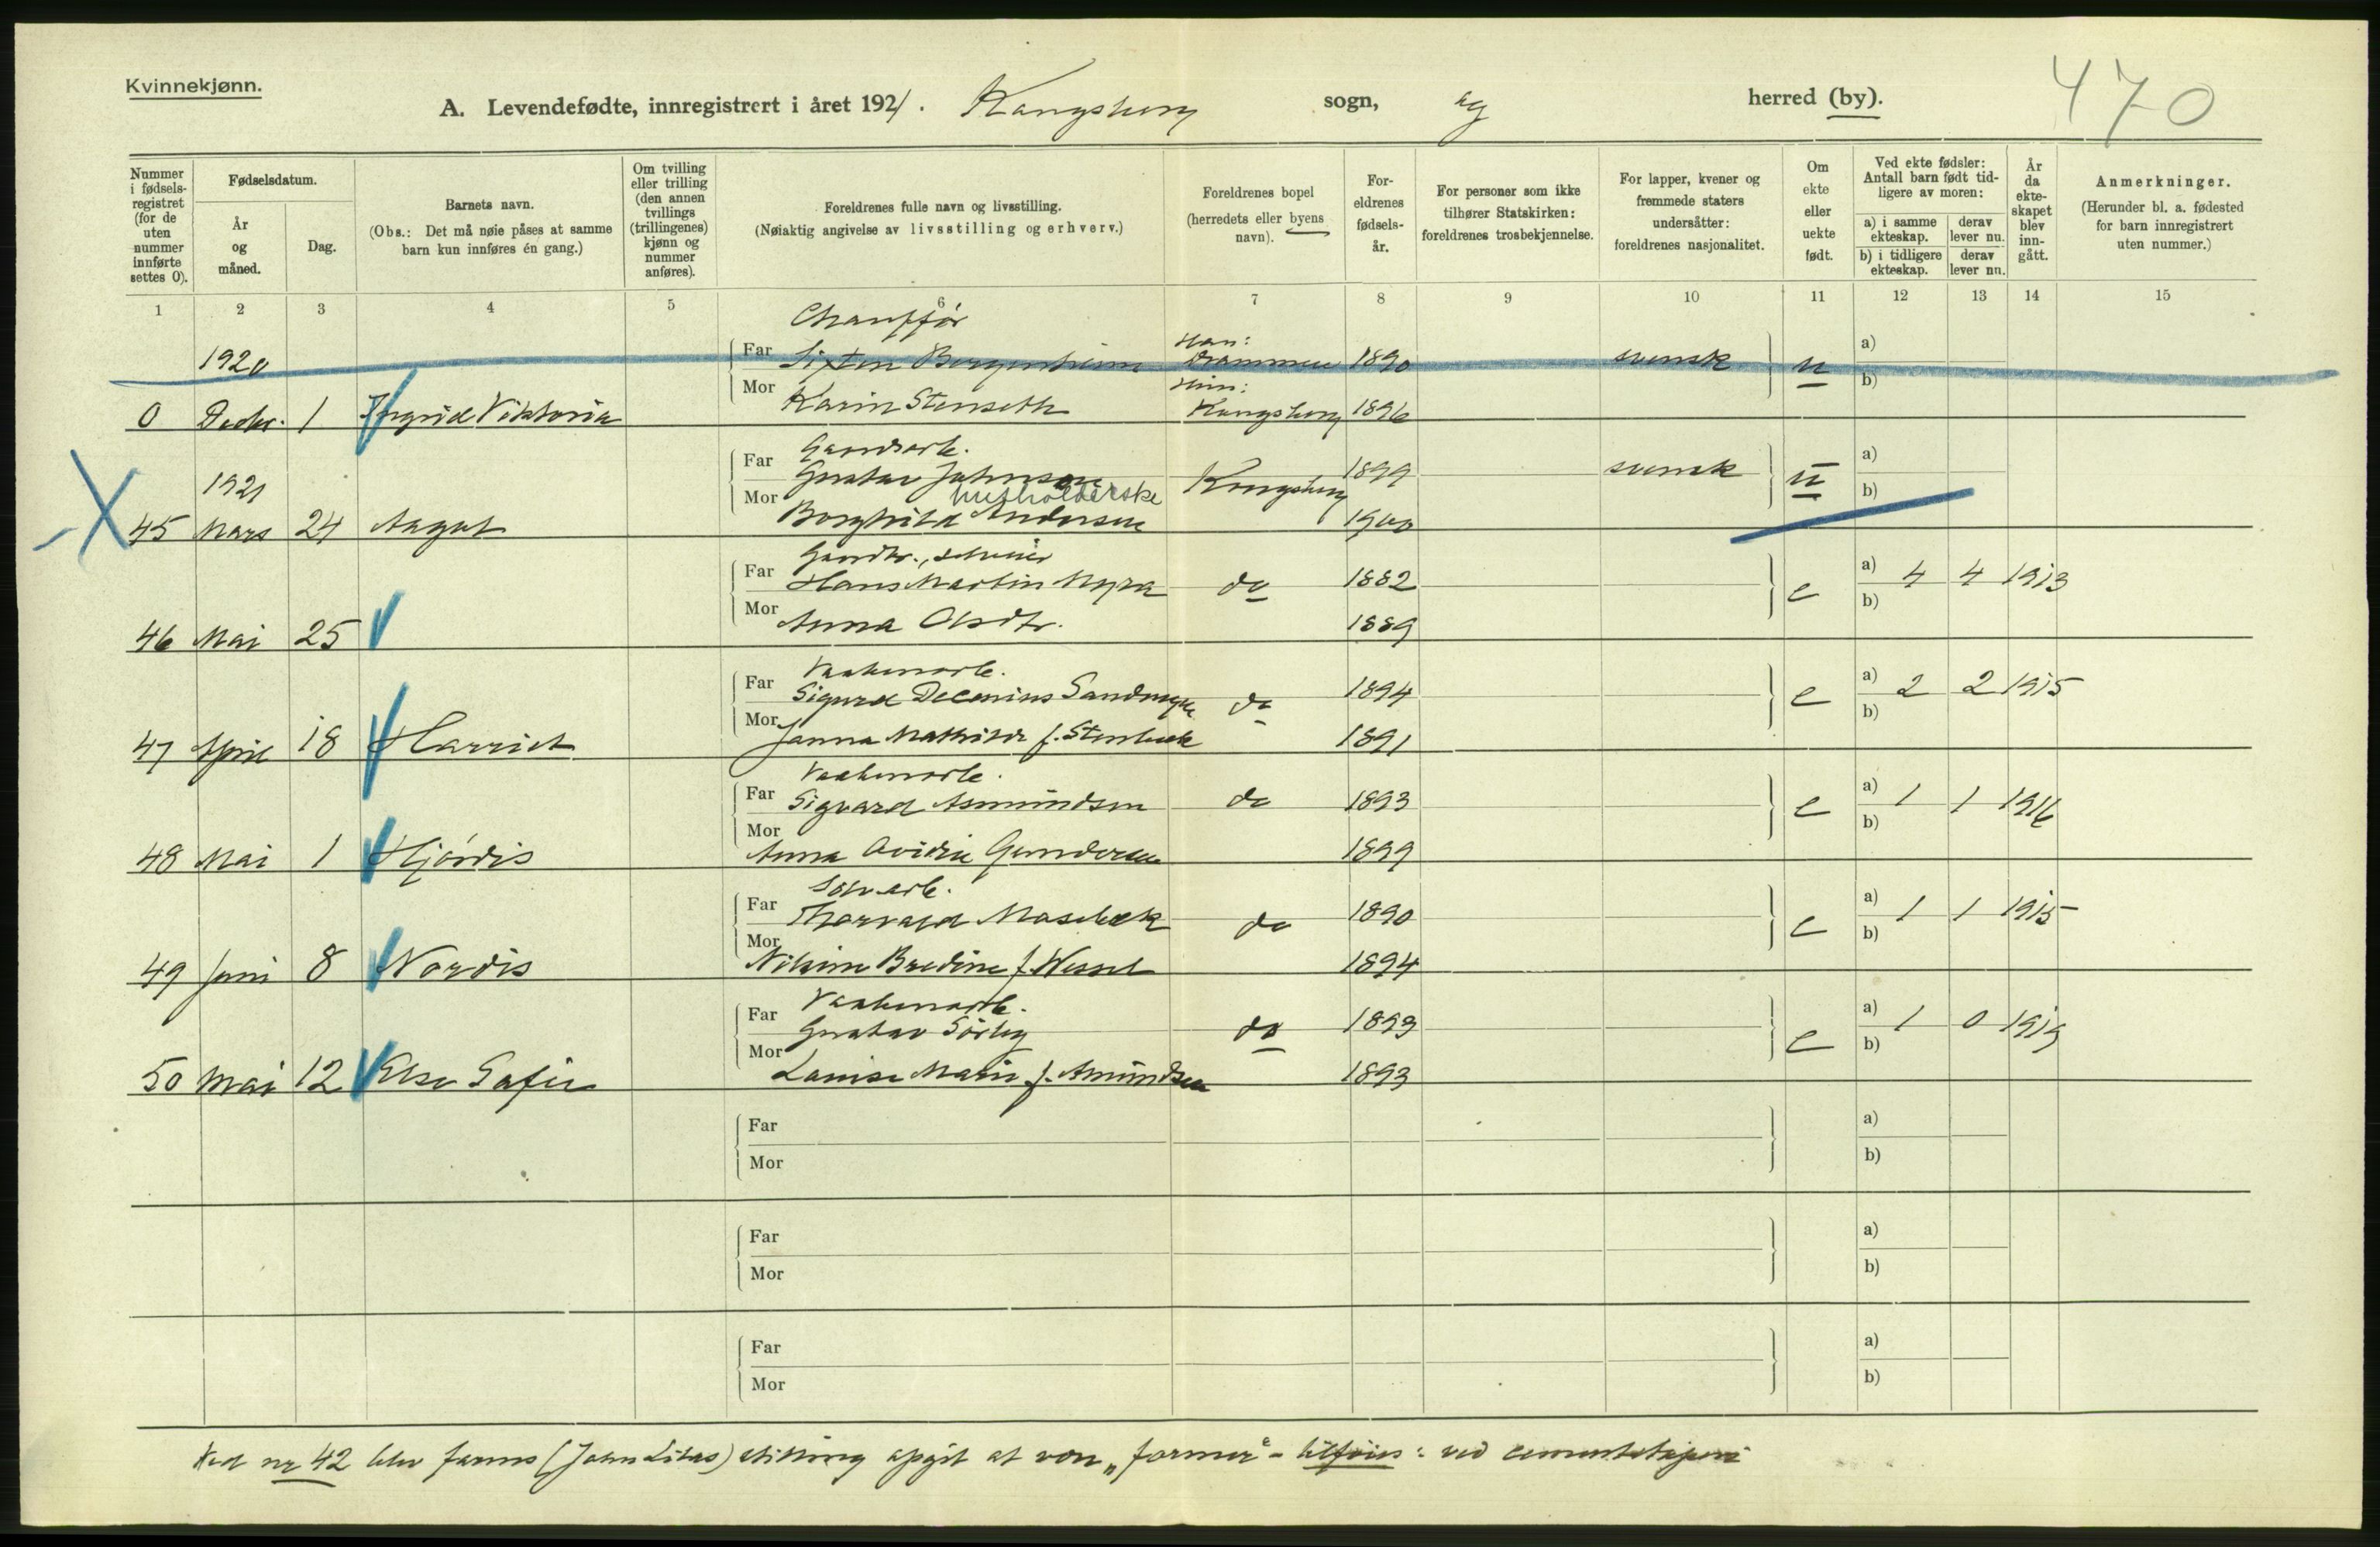 Kvinnekjønn.
470
A. Levendefødte, innregistrert i året 1921. Kongsberg sogn, og herred (by).
Nummer i fødselsregistret (for de uten nummer innførte settes 0).
Fødselsdatum.
År og måned.
Dag.
Barnets navn.
(Obs.: Det må nøie påses at samme barn kun innføres én gang.)
Om tvilling eller trilling (den annen tvillings (trillingenes) kjønn og nummer anføres).
Foreldrenes fulle navn og livsstilling.
(Nøiaktig angivelse av livsstilling og erhverv.)
Foreldrenes bopel
(herredets eller byens navn).
Foreldrenes fødselsår.
For personer som ikke tilhører Statskirken: foreldrenes trosbekjennelse.
For lapper, kvener og fremmede staters undersåtter: foreldrenes nasjonalitet.
Om ekte eller uekte født.
Ved ekte fødsler: Antall barn født tidligere av moren:
a) i samme ekteskap.
derav lever nu.
b) i tidligere ekteskap.
derav lever nu.
År da ekteskapet blev inngått.
Anmerkninger.
(Herunder bl. a. fødested for barn innregistrert uten nummer.)
1 2 3 4 5 6 7 8 9 10 11 12 13 14 15
Chauffør
1920 Far Sixten Bergenheim Han: Drammen 1890 svensk u a)
b)
0 Decbr. 1 Ingrid Viktoria Mor Karin Stenseth Hun: Kongsberg 1896
Gaardsarb.
1921 Far Gustav Johnsen Kongsberg 1899 svensk u a)
husholderske
b)
45 Mars 24 Aagot Mor Borghild Andersen 1900
Gaardbr., 
Far Hans Martin Myra do 1882 e a) 4 4 1913
b)
46 Mai 25 Mor Anna Olsdtr. 1889
Vaabenarb.
Far Sigurd Decenius Sandmyr do 1894 e a) 2 2 1915
b)
47 April 18 Harriet Mor Janna Mathilde f. Stenbæk 1891
Vaabenarb.
Far Sigvard Asmundsen do 1893 e a) 1 1 1916
b)
48 Mai 1 Hjørdis Mor Anna Ovidie Gundersen 1899
Sølvarb.
Far Thorvald Masebæk do 1890 e a) 1 1 1915
b)
49 Juni 8 Nordis Mor Nilsine Bredine f. Wessel 1894
Vaabenarb.
Far Gustav Sørby do 1893 e a) 1 0 1919
b)
50 Mai 12 Else Sofie Mor Lovise Marie f. Amundsen 1893
Far a)
Mor b)
Far a)
Mor b)
Far a)
Mor b)
Ved nr 42 blev farens (John ) stilling opgit at være „former“ - tilføies: ved cementstøperi